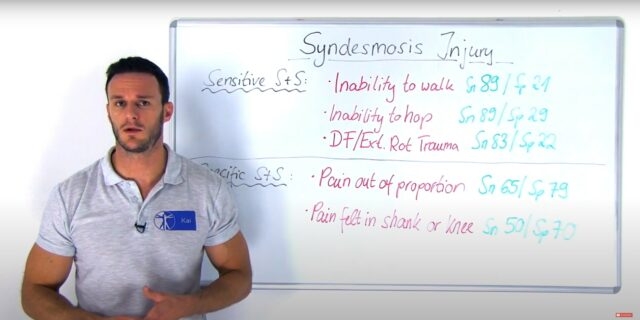 Syndesmosis Injury
Sensitive S+S:
• Inability to walk Sn 89 / Sp 21
• Inability to hop Sn 89 / Sp 29
• DF/Ext. Rot Trauma Sn 83 / Sp 22
Specific S+S:
• Pain out of proportion Sn 65 / Sp 79
• Pain felt in shank or knee Sn 50 / Sp 70
Kai